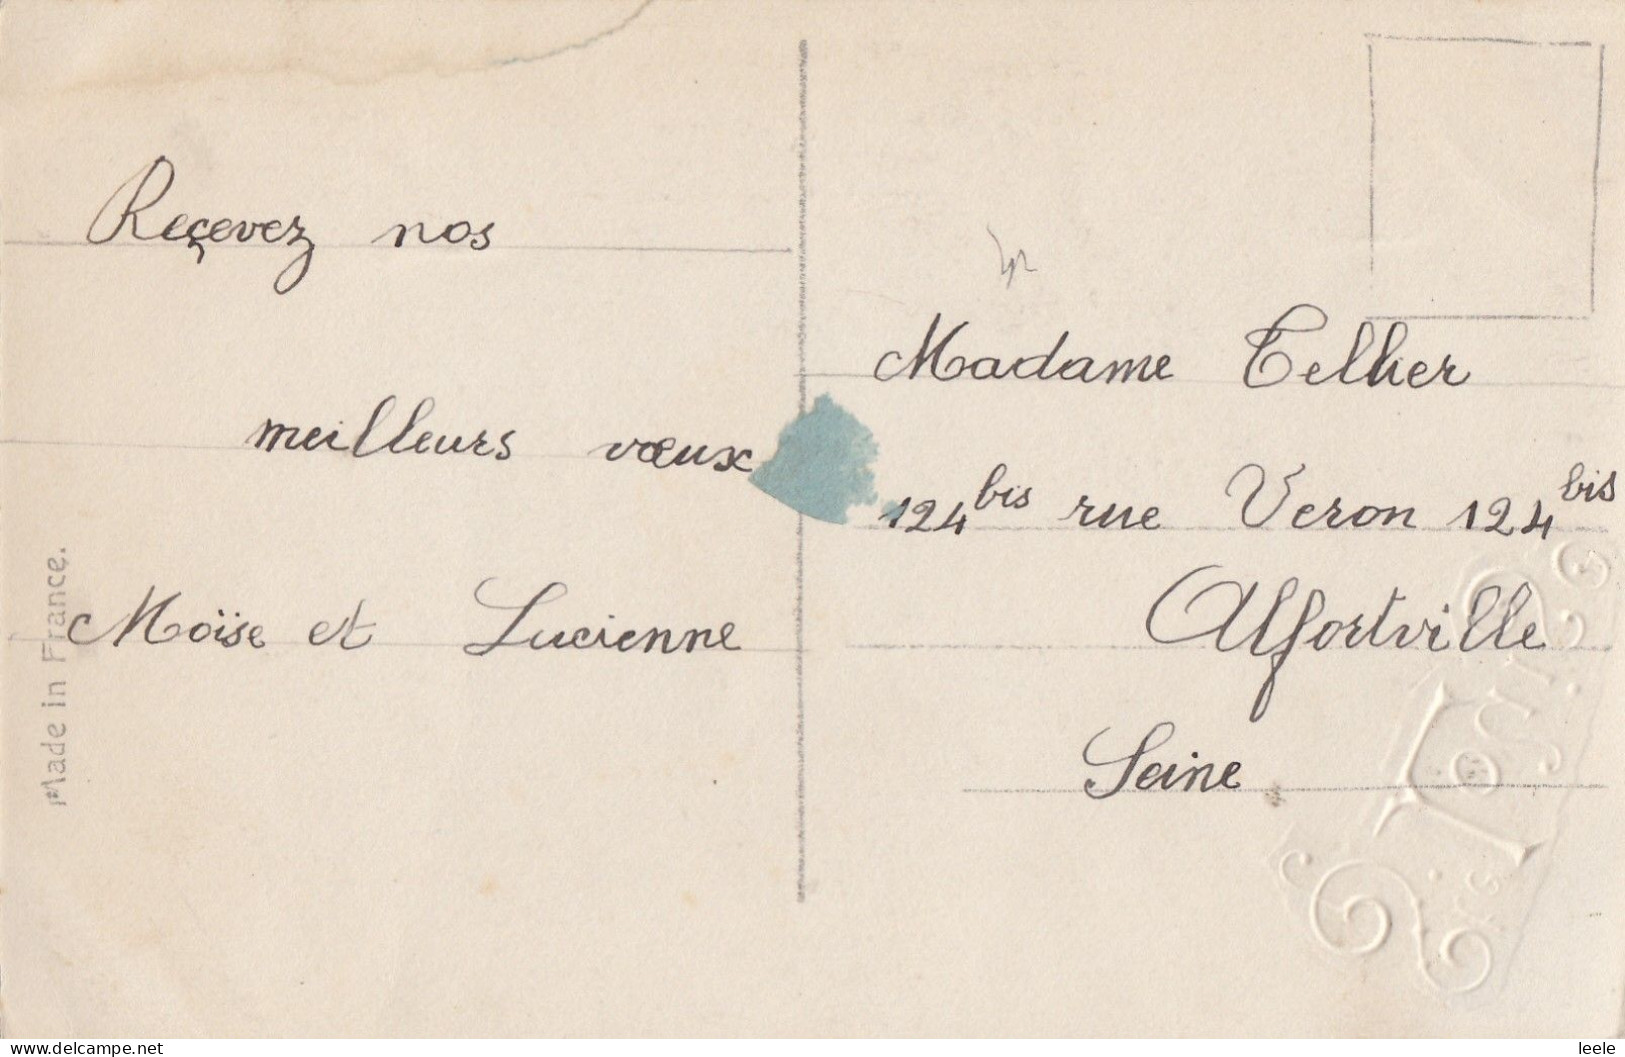 Reçevez nos
meilleurs vœux
Moïse et Lucienne
Made in France.
Madame Tellier
124bis rue Veron 124bis
Alfortville
Seine
leele